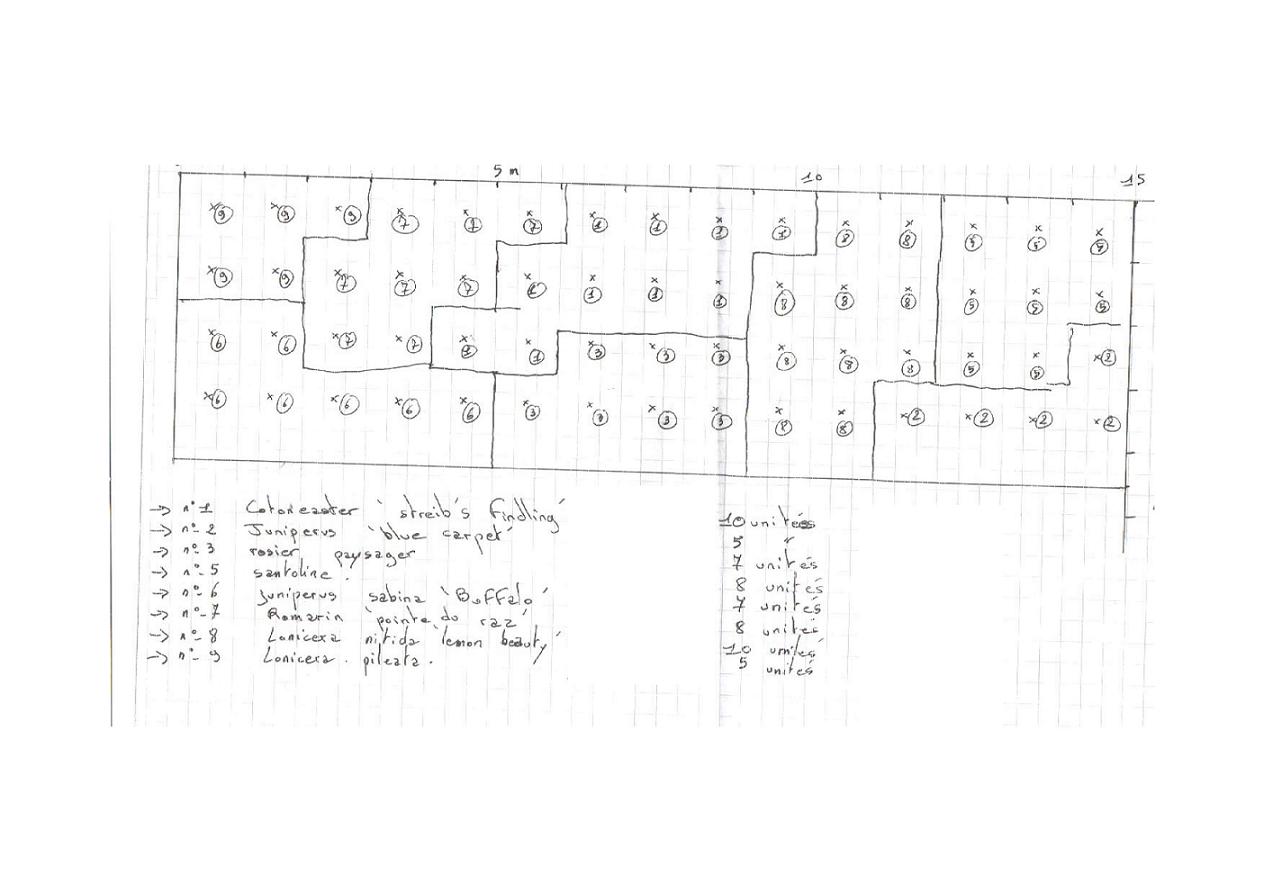 5 m 10 15
9 9 9 7 7 7 1 1 1 1 8 8 5 5 5
9 9 7 7 7 1 1 1 1 8 8 8 5 5 5
6 6 7 7 1 1 3 3 3 8 8 8 5 5 2
6 6 6 6 6 3 3 3 3 8 8 2 2 2 2
→ n° 1 Cotoneaster 'streib's findling' 10 unités
→ n° 2 Juniperus 'blue carpet' 5 "
→ n° 3 rosier paysager 7 unités
→ n° 5 santoline. 8 unités
→ n° 6 juniperus sabina 'Buffalo' 7 unités
→ n° 7 Romarin 'pointe du raz' 8 unités
→ n° 8 Lonicera nitida 'lemon beauty' 10 unités
→ n° 9 Lonicera. pileata. 5 unités